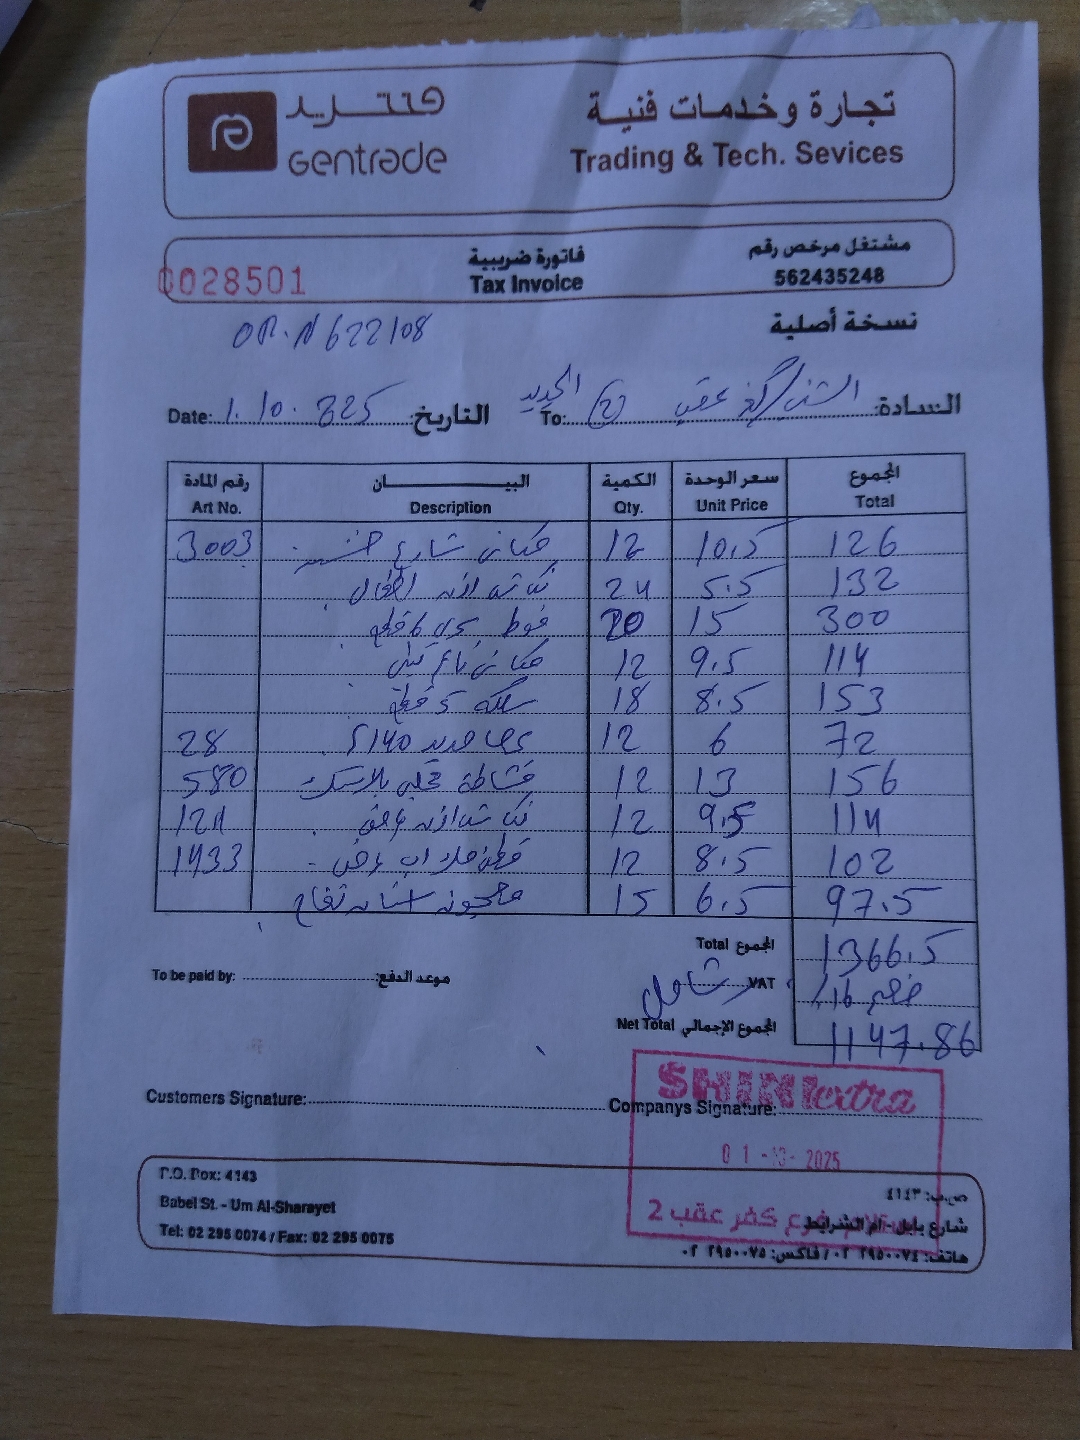 جنتريد
Gentrade
تجارة وخدمات فنية
Trading & Tech. Sevices
0028501
فاتورة ضريبية
Tax Invoice
مشتغل مرخص رقم
562435248
نسخة أصلية
OR.N 622108
Date: 1.10.325 التاريخ:
To: عقب (2) الجديد السادة:
رقم المادة البيــــــان الكمية سعر الوحدة المجموع
Art No. Description Qty. Unit Price Total
3003 12 10.5 126
24 5.5 132
فوط 6 قطع 20 15 300
12 9.5 114
سلكة 5 قطع 18 8.5 153
28 حديد 140 12 6 72
580 قشاطة بلاستيك 12 13 156
124 12 9.5 114
1433 12 8.5 102
معجونة اسنان تفاح 15 6.5 97.5
Total المجموع 1366.5
To be paid by: موعد الدفع:
VAT شامل خصم 16%
Net Total المجموع الإجمالي 1147.86
Customers Signature:
Companys Signature:
SHINI extra
01-10-2025
فرع كفر عقب 2
P.O. Box: 4143
Babel St. - Um Al-Sharayet
Tel: 02 295 0074 / Fax: 02 295 0075
ص.ب: ٤١٤٣
شارع بابل - أم الشرايط
هاتف: ٠٢ ٢٩٥٠٠٧٤ / فاكس: ٠٢ ٢٩٥٠٠٧٥